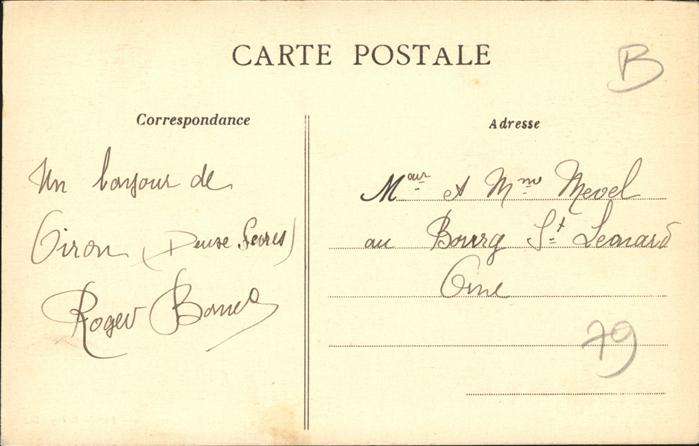 CARTE POSTALE
B
Correspondance
Un bonjour de
Oiron (Deuse Sevres)
Roger
Adresse
Mour et Mme Mevel
au Bourg St Leonard
Orne
79